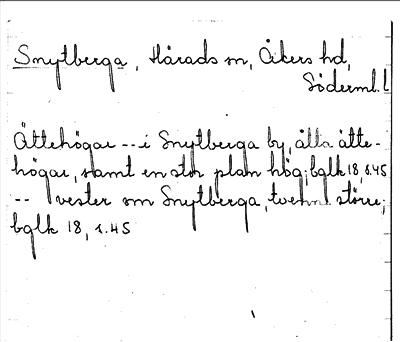 Snytberga, Härads sn, Åkers hd,
Söderml. l
Ättehögar -- i Snytberga by, åtta ätte-
högar, samt en stor plan hög; bglk 18, s.45
-- vester om Snytberga, tvenne större;
bglk 18, s.45